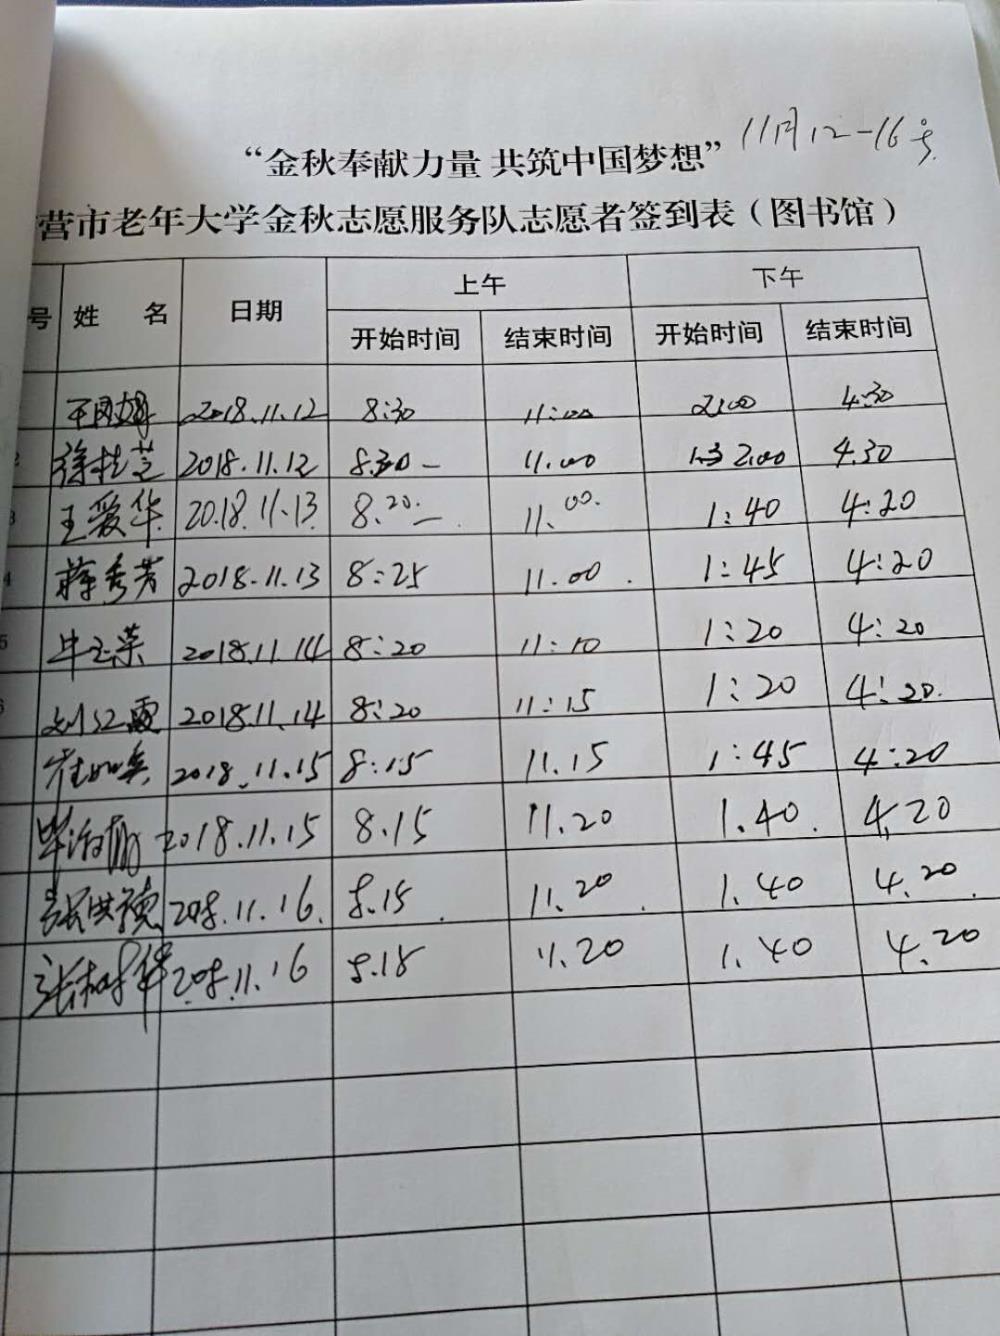 11月12-16号
“金秋奉献力量 共筑中国梦想”
营市老年大学金秋志愿服务队志愿者签到表（图书馆）
号 姓 名 日期 上午 下午
开始时间 结束时间 开始时间 结束时间
2018.11.12 8:30 11:00 2:00 4:30
2 徐桂芝 2018.11.12 8:30 11.00 2:00 4.30
3 王爱华 2018.11.13 8.20 11.00 1:40 4:20
4 蒋秀芳 2018.11.13 8:25 11.00 1:45 4:20
5 毕玉荣 2018.11.14 8:20 11:10 1:20 4:20
6 刘江霞 2018.11.14 8:20 11:15 1:20 4:20
2018.11.15 8:15 11.15 1:45 4:20
2018.11.15 8.15 11.20 1.40 4.20
张洪德 208.11.16 8.15 11.20 1.40 4.20
208.11.16 8.15 11.20 1.40 4.20